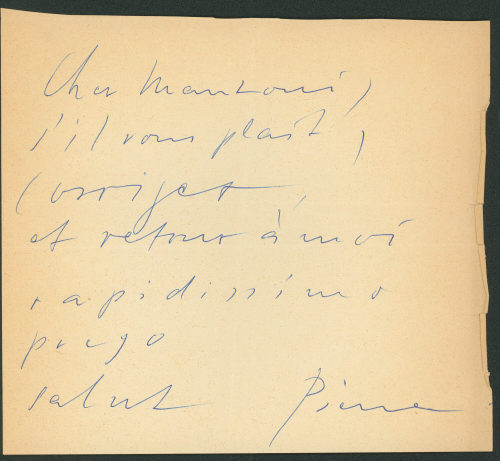 Cher Manzoni,
s'il vous plaît,
corriger
et retour à moi
rapidissimo
prego
salut Pierre